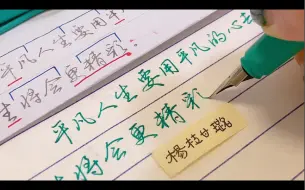 平凡人生要用平
生将会更精彩:
平凡人生要用平凡的心去
将会更精彩
杨枝甘璐